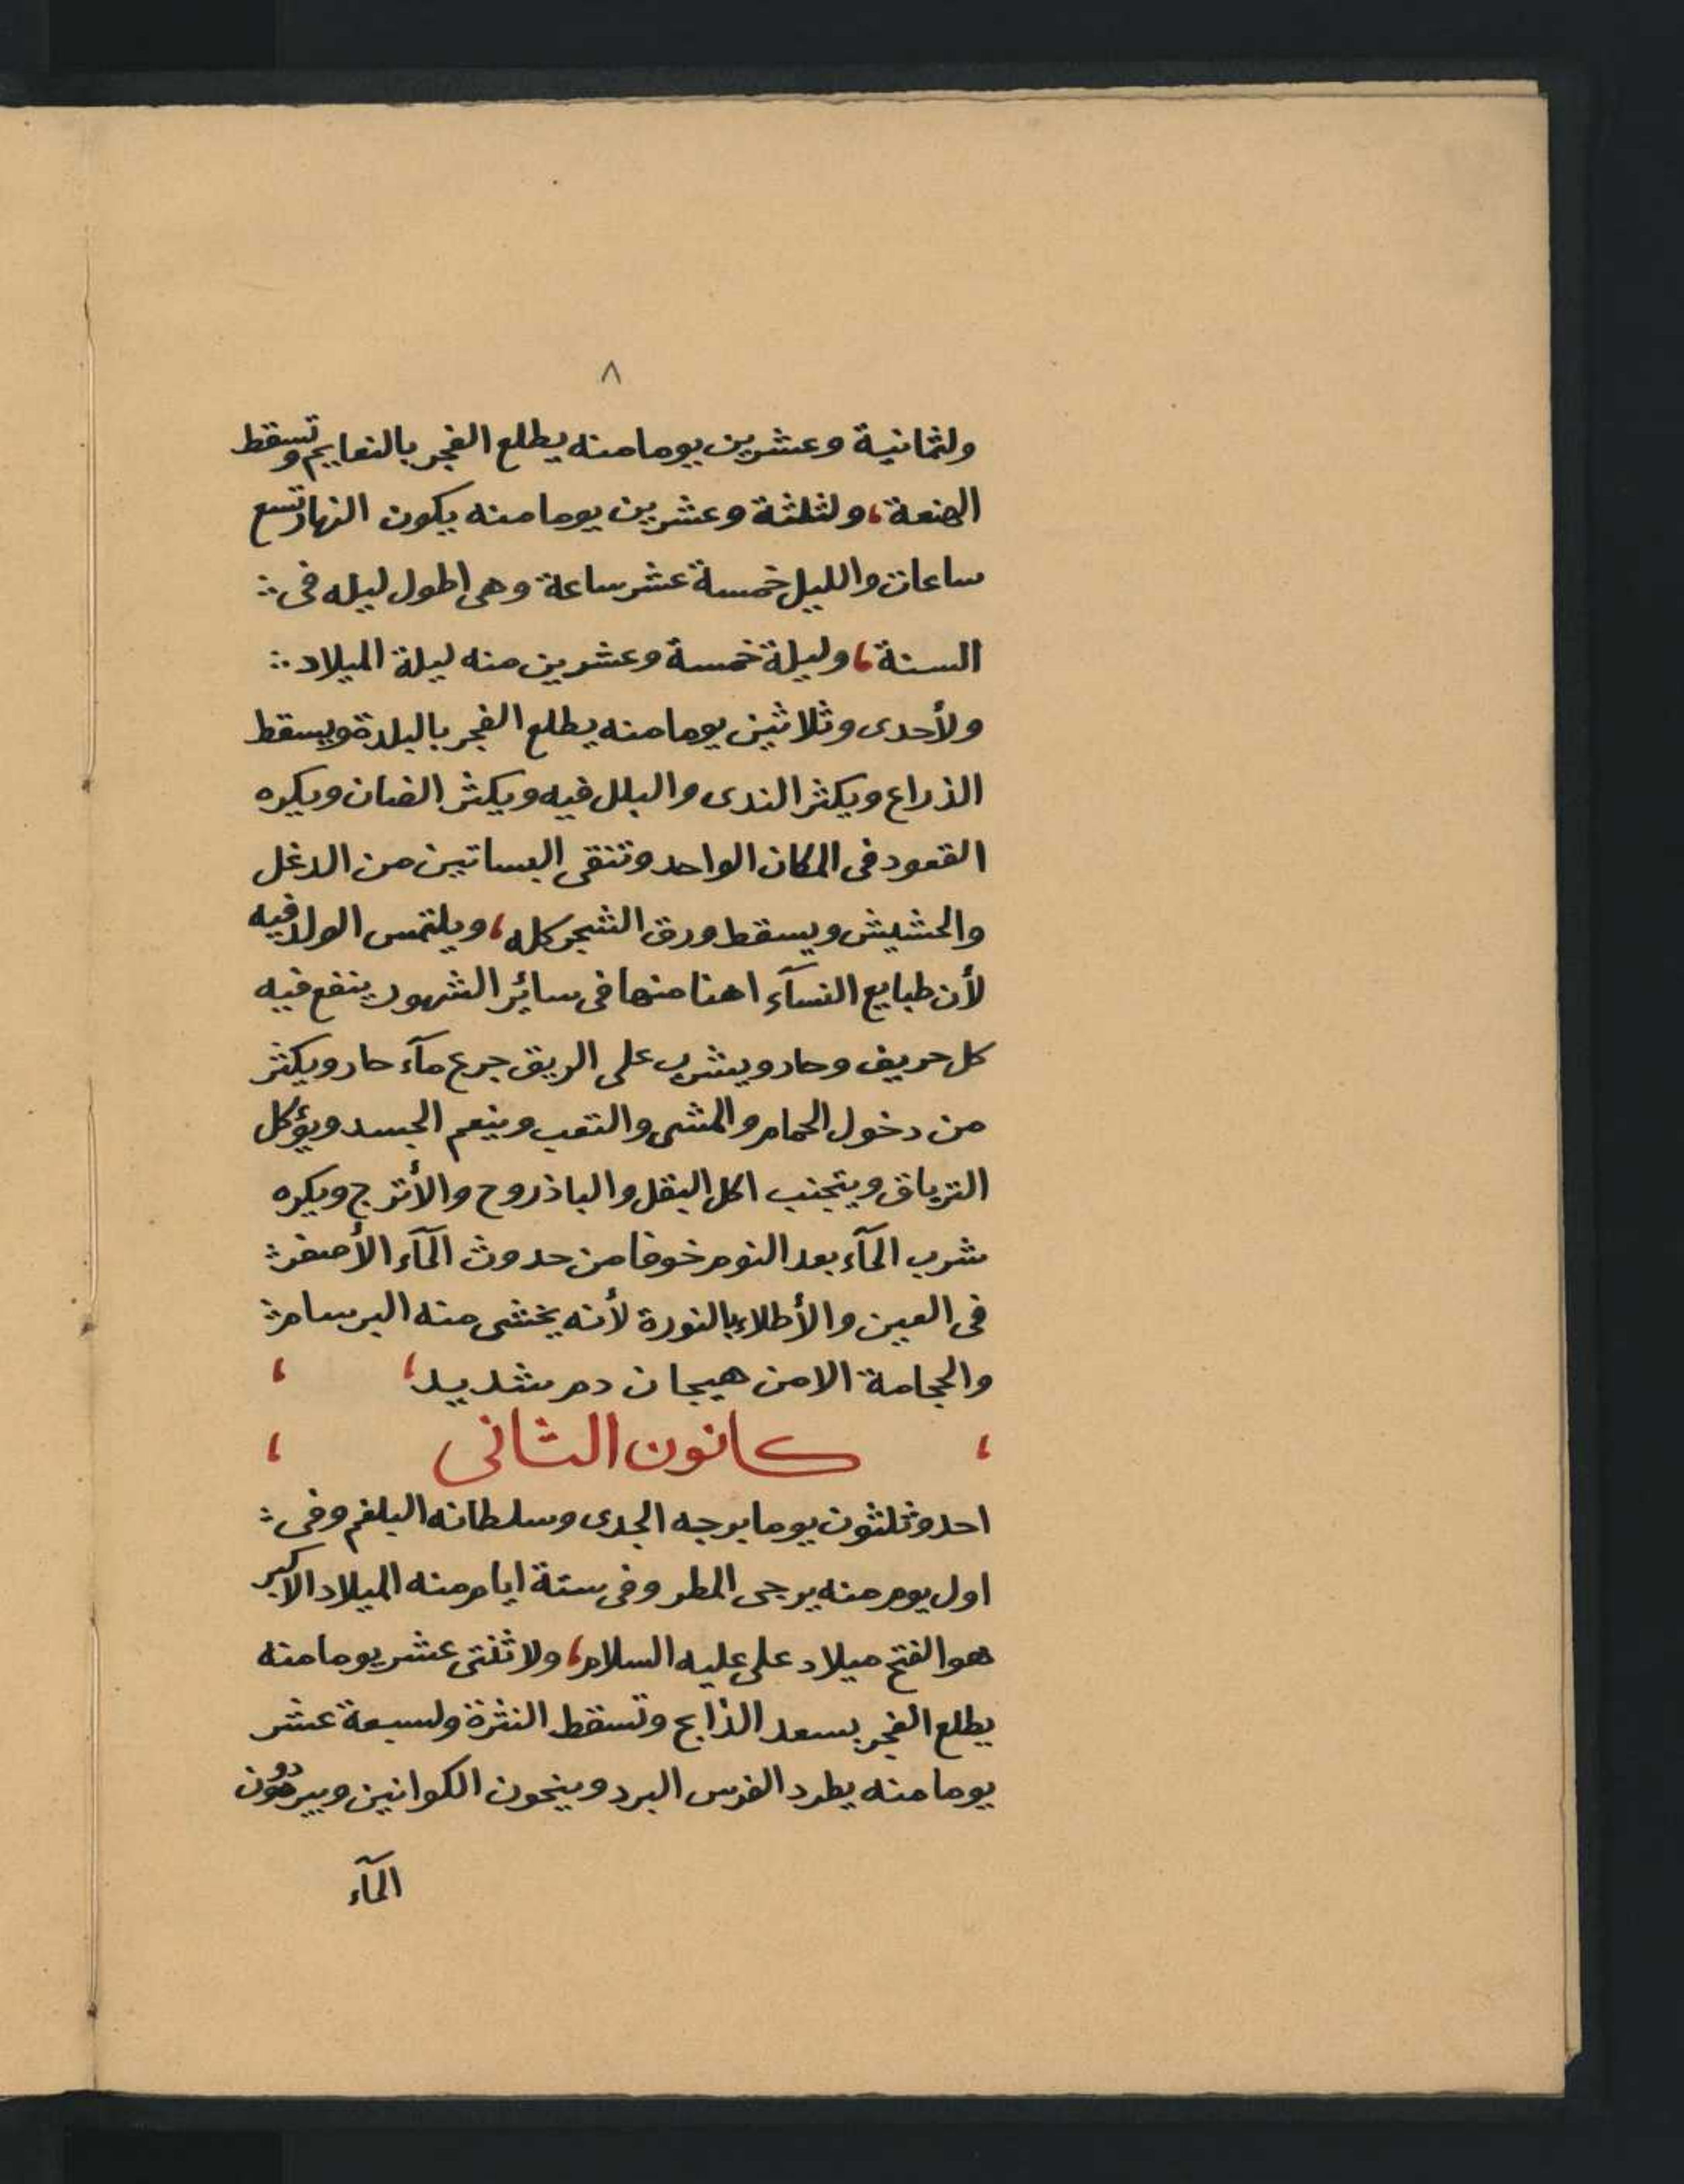 ٨
ولثمانية وعشرين يوما منه يطلع الفجر بالنعايم وتسقط
الهنعة، ولثلثة وعشرين يوما منه يكون النهار تسع
ساعات والليل خمسة عشر ساعة وهى اطول ليله فى
السنة، وليلة خمسة وعشرين منه ليلة الميلاد
ولأحدى وثلاثين يوما منه يطلع الفجر بالبلدة ويسقط
الذراع ويكثر الندى والبلل فيه ويكثر ويكره
القعود فى المكان الواحد وتنقى البساتين من الدغل
والحشيش ويسقط ورق الشجر كله، ويلتمس الولد فيه
لأن طبايع النسآء اهنا منها فى سائر الشهور ينفع فيه
كل حريف وحار ويشرب على الريق جرع مآء حار ويكثر
من دخول الحمام والمشى والتعب وينعم الجسد ويؤكل
الترياق ويتجنب اكل البقل والباذروح والأترج ويكره
شرب المآء بعد النوم خوفا من حدوث المآء الأصفر
فى العين والأطلاء بالنورة لأنه يخشى منه البرسام
والحجامة الا من هيجان دم شديد،
كانون الثانى
احد وثلثون يوما برجه الجدى وسلطانه البلغم وفى
اول يوم منه يرجى المطر وفى ستة ايام منه الميلاد الاكبر
هو الفتح ميلاد على عليه السلام، ولاثنتى عشر يوما منه
يطلع الفجر بسعد الذابح وتسقط النثرة ولسبعة عشر
يوما منه يطرد الفرس البرد وينحون الكوانين ويبردون
المآء